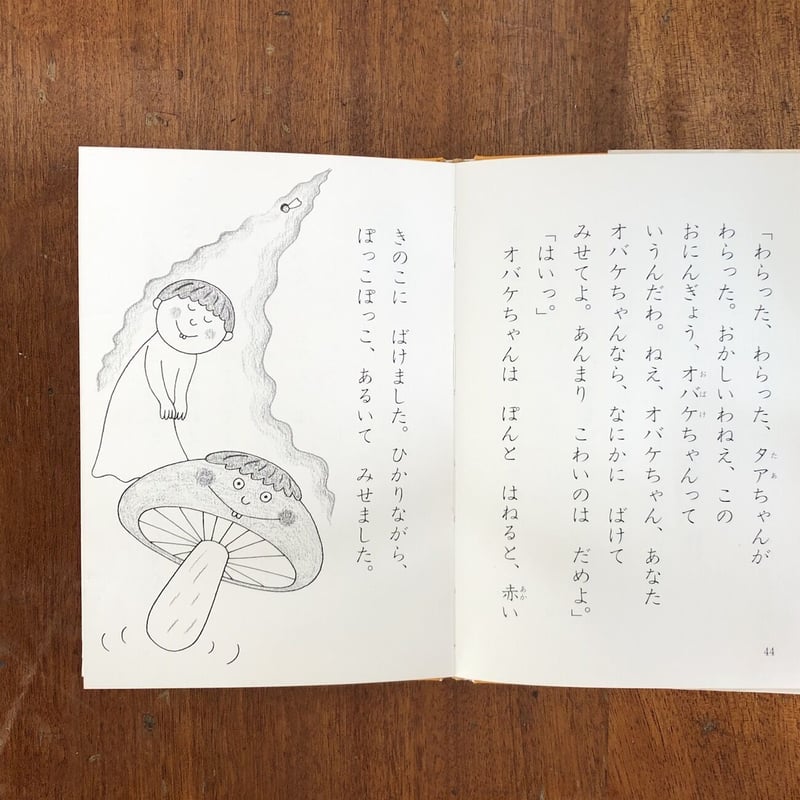 「わらった、わらった、タアちゃんが
わらった。おかしいわねえ、この
おにんぎょう、オバケちゃんって
いうんだわ。ねえ、オバケちゃん、あなた
オバケちゃんなら、なにかに ばけて
みせてよ。あんまり こわいのは だめよ。」
「はいっ。」
オバケちゃんは ぽんと はねると、赤い
44
きのこに ばけました。ひかりながら、
ぽっこぽっこ、あるいて みせました。